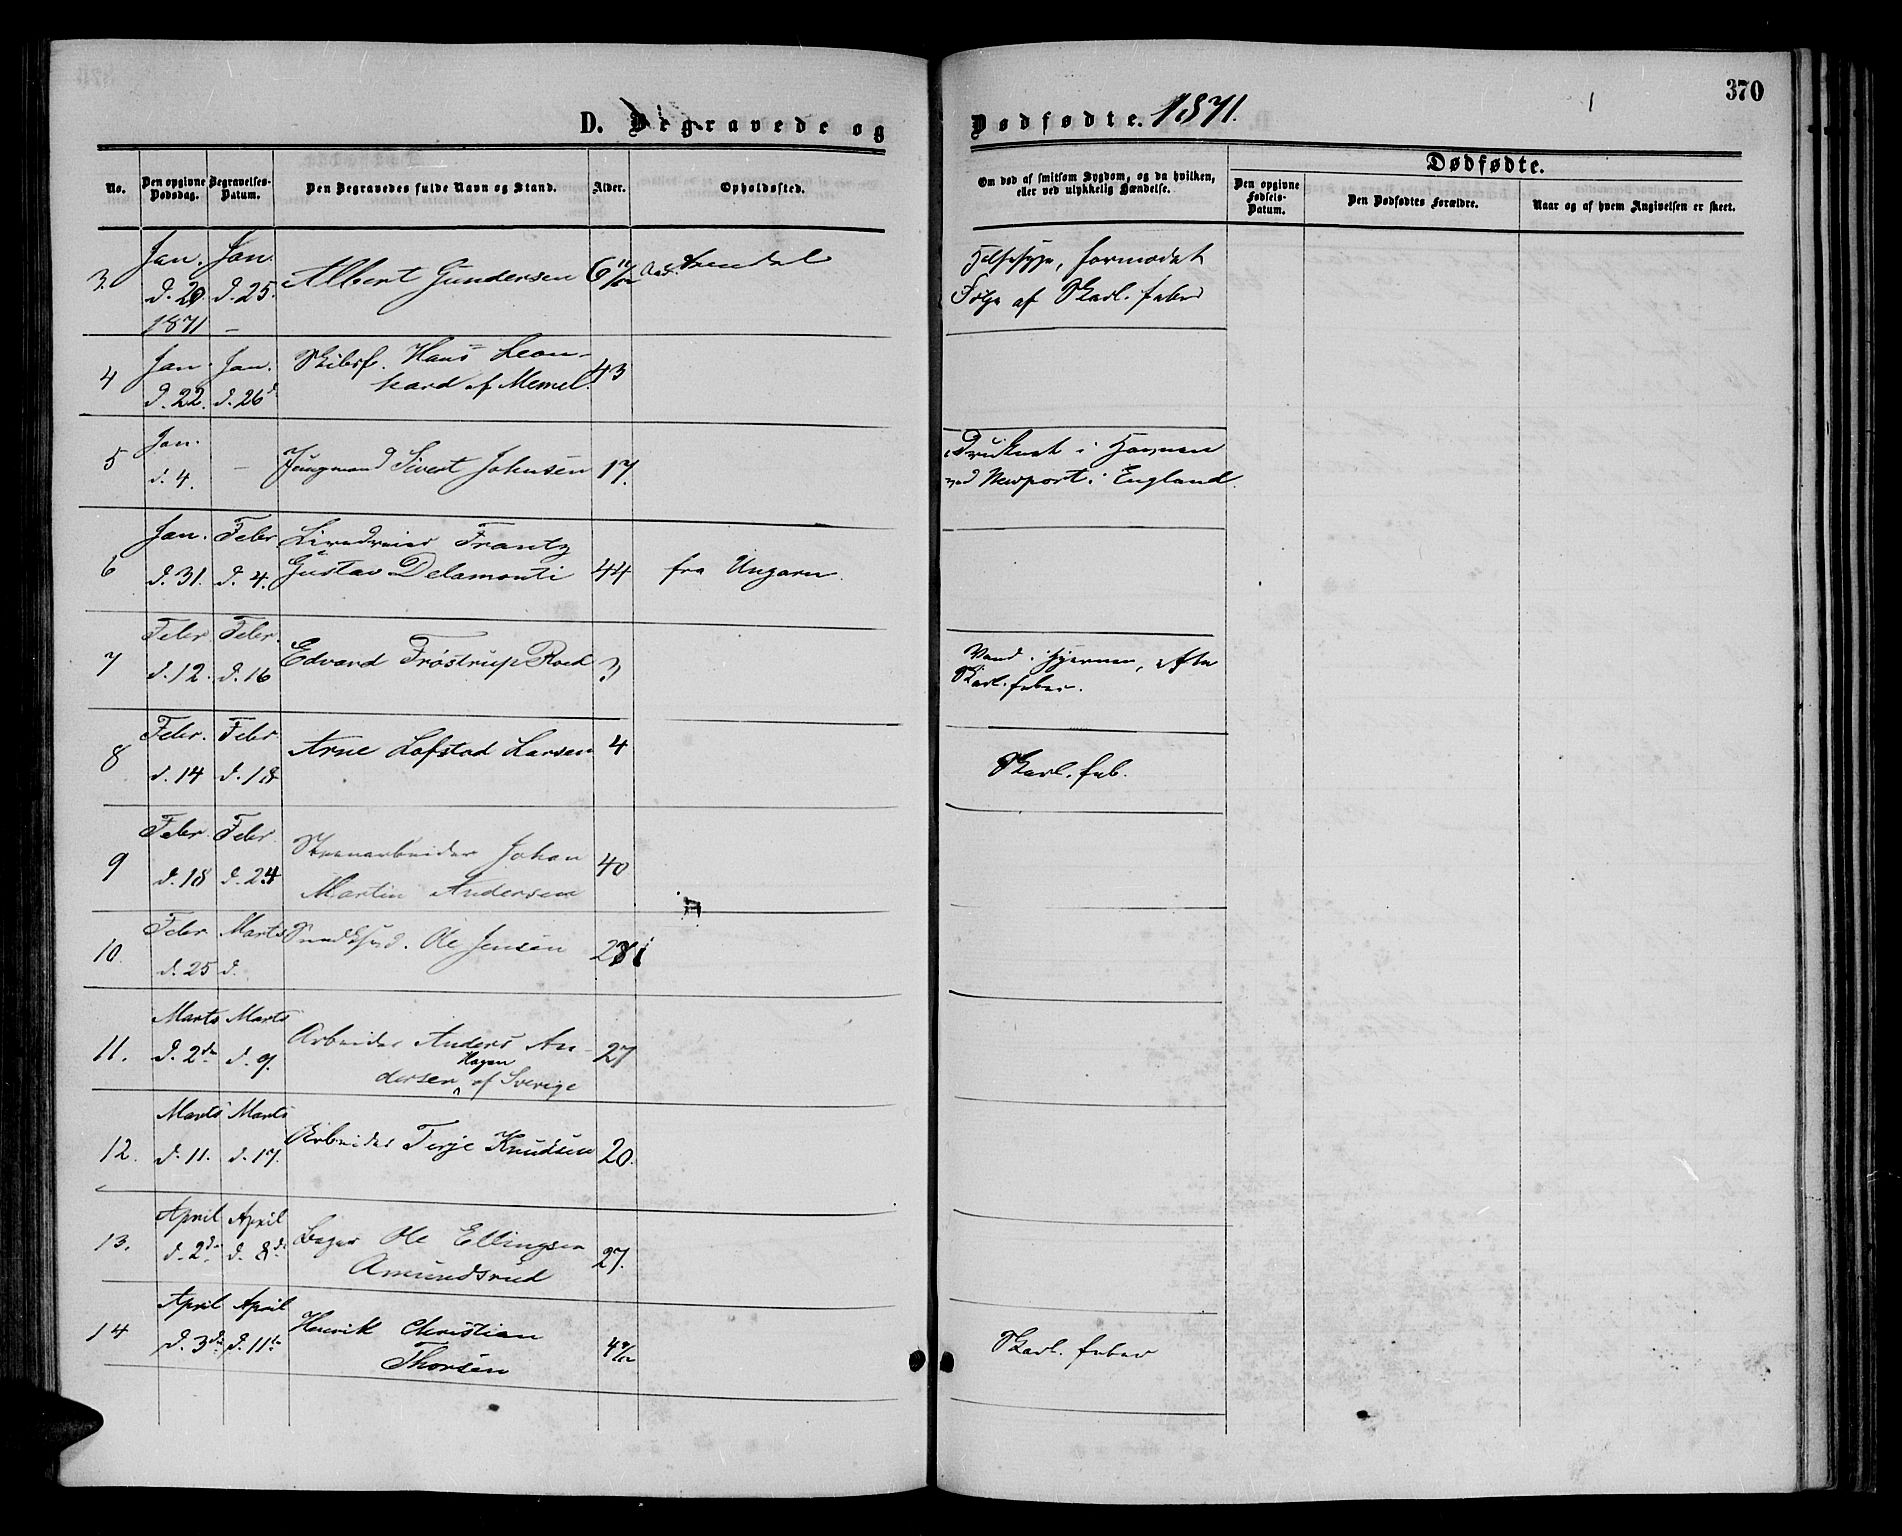 370
D. Begravede og Dødfødte. 1871.
No. Den opgivne Dødsdag. Begravelses-Datum. Den Begravedes fulde Navn og Stand. Alder. Opholdssted.
Om død af smitsom Sygdom, og da hvilken, eller ved ulykkelig Hændelse.
Dødfødte.
Den opgivne Fødsels-Datum. Den Dødfødtes Forældre. Naar og af hvem Angivelsen er skeet.
3. Jan. d. 20. 1871 Jan. d. 25. – Albert Gundersen 6 11/12 Arendal
formodet
Følge af Skarl. feber
4 Jan. d. 22. Jan. d. 26 Skibsf. Hans Leon-
hard af Memel. 43
5 Jan. d. 4. – Jungmand Sivert Johnsen 17.
Druknet i Havnen
ved Newport i England.
6 Jan. d. 31. Febr d. 4. Frantz
Gustav Delamonti 44 fra Ungarn.
7 Febr d. 12. Febr. d. 16 Edvard Frøstrup Roed 3
Vand i Hjernen, efter
Skarl. feber.
8 Febr. d. 14 Febr d. 18 Arne Lofstad Larsen 4
Skarl. feb.
9 Febr. d. 18 Febr d. 24 Johan
Martin Andersen 40
10. Febr d. 25 Marts d. Ole Jensen
11. Marts d. 2den Marts d. 9. Arbeider Anders An-
dersen Hagen af Sverige 27
12. Marts d. 11. Marts d. 17. Arbeider Terje Knudsen 20.
13. April d. 2den April d. 8de Bager Ole Ellingsen
Amundsrud 27.
14 April d. 3die April d. 11te Henrik Christian
Thorsen
Skarl. feber